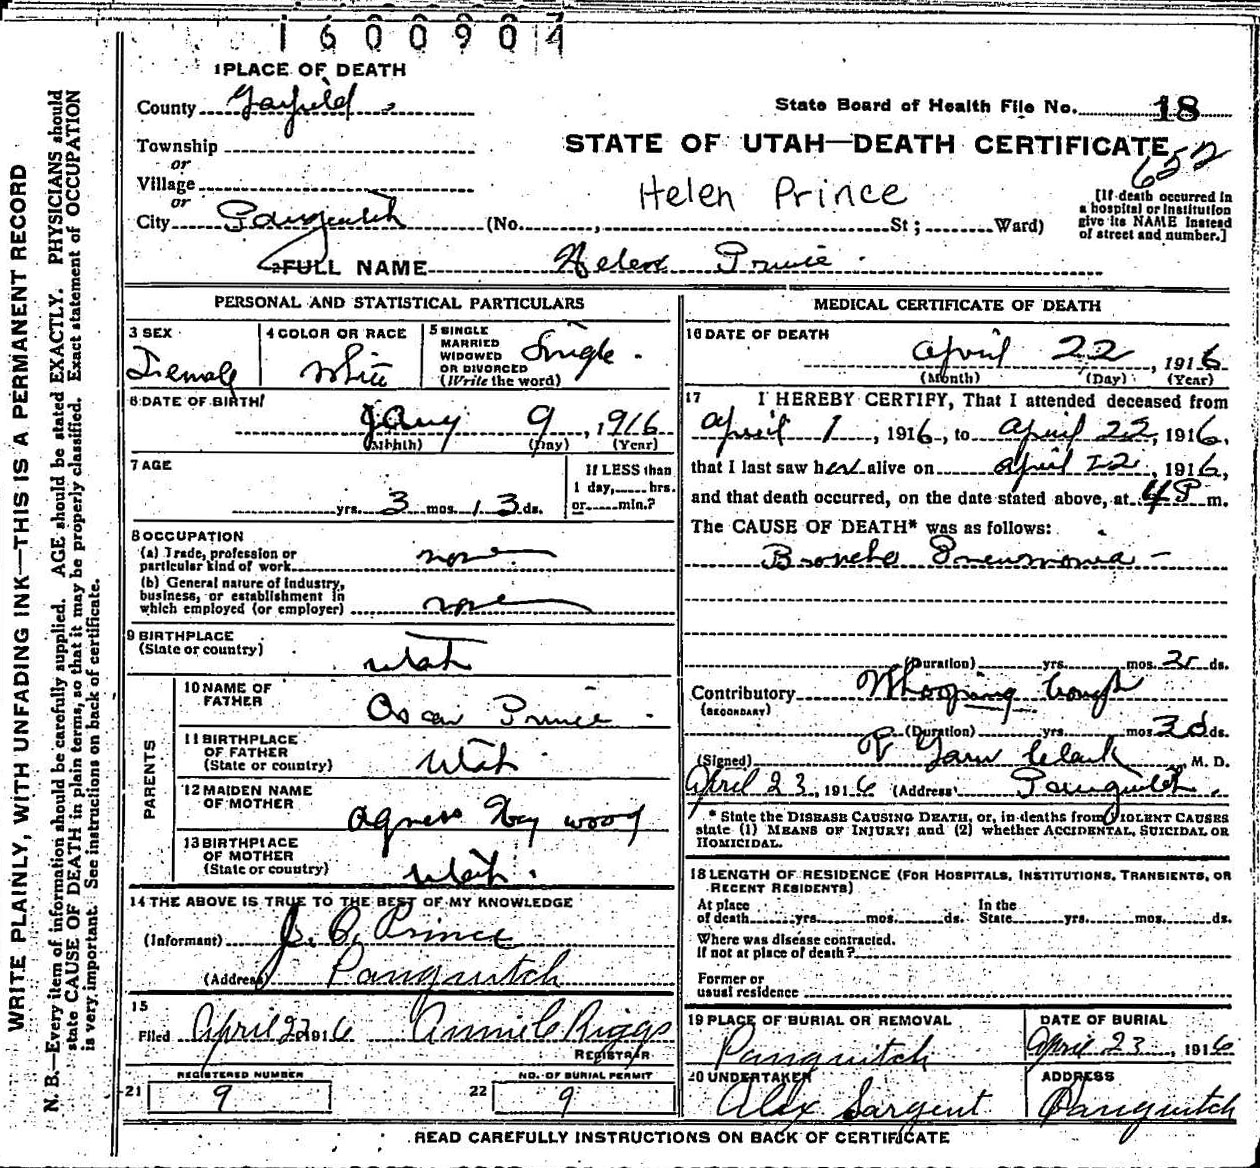 1600904
1 PLACE OF DEATH
County Garfield
State Board of Health File No. 18
Township
or
Village
or
City Panguitch (No. , St; Ward)
STATE OF UTAH—DEATH CERTIFICATE
652
Helen Prince
[If death occurred in
a hospital or institution
give its NAME instead
of street and number.]
2 FULL NAME Helen Prince
PERSONAL AND STATISTICAL PARTICULARS
3 SEX
Female
4 COLOR OR RACE
White
5 SINGLE
MARRIED
WIDOWED
OR DIVORCED
(Write the word)
Single
6 DATE OF BIRTH
Jany 9, 1916
(Month) (Day) (Year)
7 AGE
yrs. 3 mos. 13 ds.
If LESS than
1 day, hrs.
or min.?
8 OCCUPATION
(a) Trade, profession or
particular kind of work none
(b) General nature of industry,
business, or establishment in
which employed (or employer) none
9 BIRTHPLACE
(State or country)
Utah
PARENTS
10 NAME OF
FATHER
Oscar Prince
11 BIRTHPLACE
OF FATHER
(State or country)
Utah
12 MAIDEN NAME
OF MOTHER
Agness Hey wood
13 BIRTHPLACE
OF MOTHER
(State or country)
Utah.
14 THE ABOVE IS TRUE TO THE BEST OF MY KNOWLEDGE
(Informant) J. O. Prince
(Address) Panguitch
15
Filed April 22 1916 Annie C Riggs
REGISTRAR
21
REGISTERED NUMBER
9
22
NO. OF BURIAL PERMIT
9
MEDICAL CERTIFICATE OF DEATH
16 DATE OF DEATH
April 22, 1916
(Month) (Day) (Year)
17 I HEREBY CERTIFY, That I attended deceased from
April 1, 1916, to April 22, 1916,
that I last saw her alive on April 22, 1916,
and that death occurred, on the date stated above, at 4 P m.
The CAUSE OF DEATH* was as follows:
Broncho Pneumonia
(Duration) yrs. mos. ds.
Contributory Whooping Cough
(SECONDARY)
(Duration) yrs. mos. ds.
(Signed) Clark M. D.
April 23, 1916 (Address) Panguitch.
* State the DISEASE CAUSING DEATH, or, in deaths from VIOLENT CAUSES
state (1) MEANS OF INJURY; and (2) whether ACCIDENTAL, SUICIDAL OR
HOMICIDAL.
18 LENGTH OF RESIDENCE (FOR HOSPITALS, INSTITUTIONS, TRANSIENTS, OR
RECENT RESIDENTS)
At place
of death yrs. mos. ds.
In the
State yrs. mos. ds.
Where was disease contracted.
If not at place of death?
Former or
usual residence
19 PLACE OF BURIAL OR REMOVAL
Panguitch
DATE OF BURIAL
April 23, 1916
20 UNDERTAKER
Alex Sargent
ADDRESS
Panguitch
READ CAREFULLY INSTRUCTIONS ON BACK OF CERTIFICATE
WRITE PLAINLY, WITH UNFADING INK—THIS IS A PERMANENT RECORD
N. B.—Every item of information should be carefully supplied. AGE should be stated EXACTLY. PHYSICIANS should
state CAUSE OF DEATH in plain terms, so that it may be properly classified. Exact statement of OCCUPATION
is very important. See instructions on back of certificate.